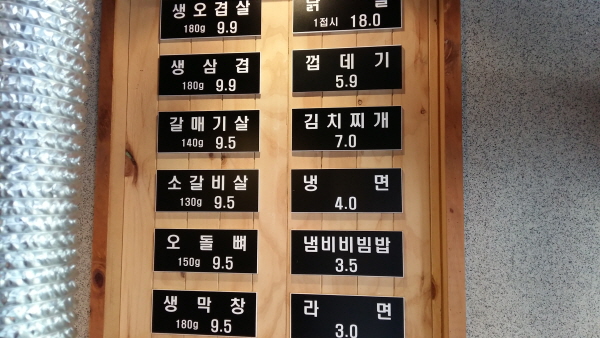 생오겹살
180g 9.9
생삼겹
180g 9.9
갈매기살
140g 9.5
소갈비살
130g 9.5
오돌뼈
150g 9.5
생막창
180g 9.5
1접시 18.0
껍데기
5.9
김치찌개
7.0
냉면
4.0
냄비비빔밥
3.5
라면
3.0